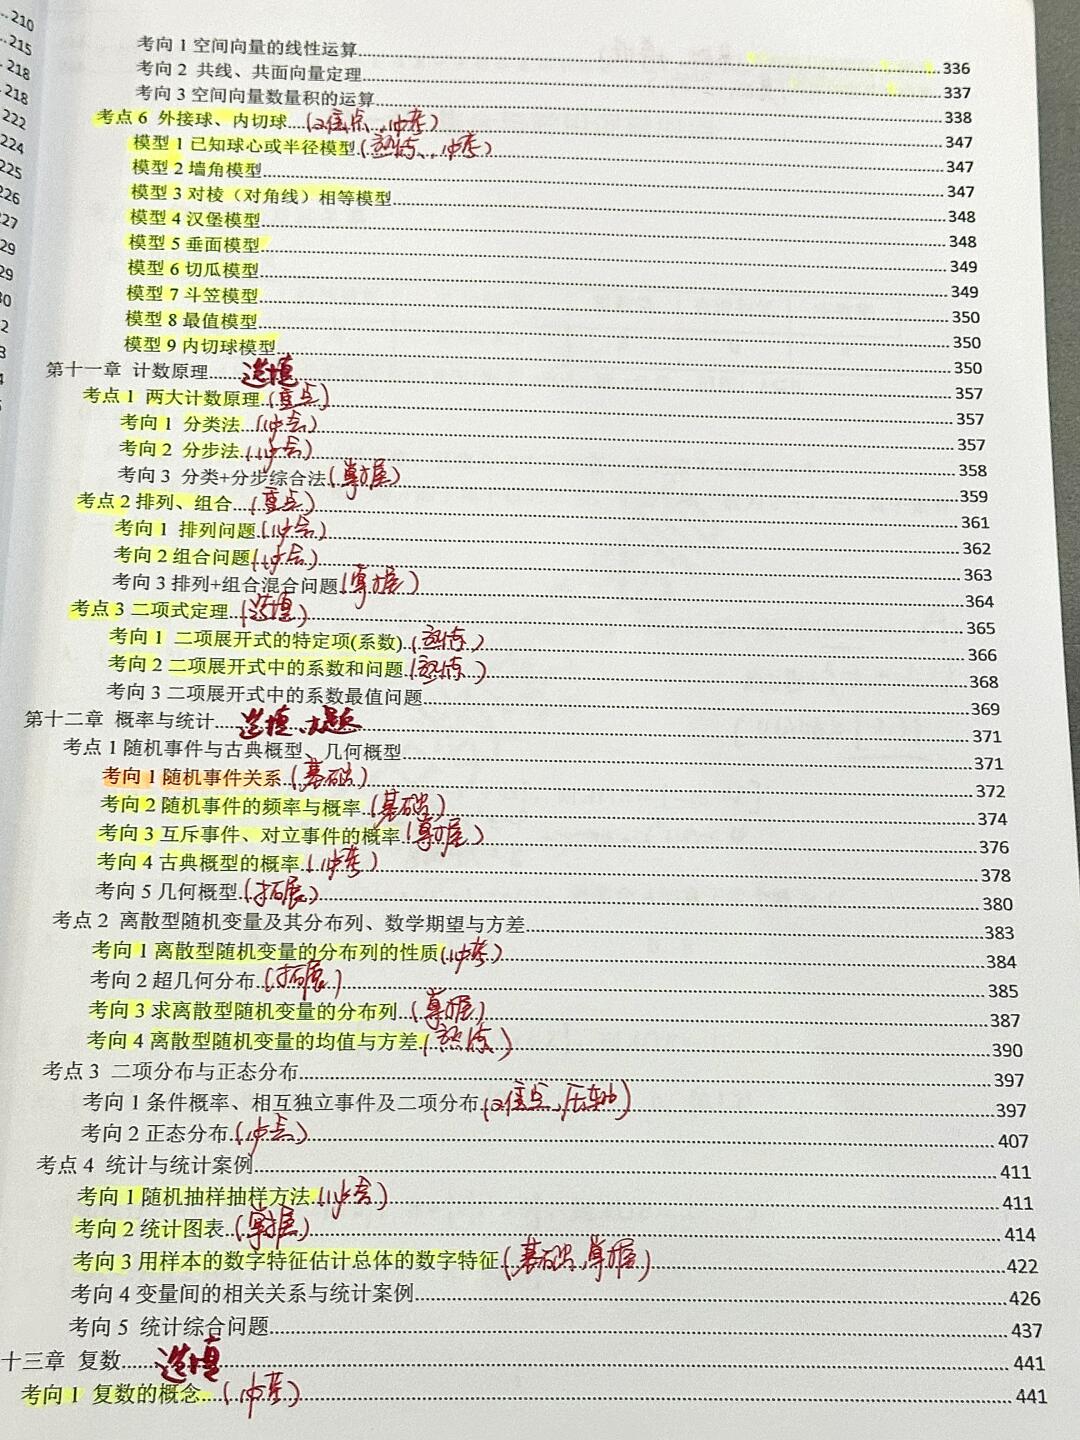 210
215
218
218
222
224
225
226
227
29
29
30
2
3
4
考向 1 空间向量的线性运算 336
考向 2 共线、共面向量定理 337
考向 3 空间向量数量积的运算 338
考点 6 外接球、内切球 347
模型 1 已知球心或半径模型 (熟练、必考) 347
模型 2 墙角模型 347
模型 3 对棱（对角线）相等模型 348
模型 4 汉堡模型 348
模型 5 垂面模型 349
模型 6 切瓜模型 349
模型 7 斗笠模型 350
模型 8 最值模型 350
模型 9 内切球模型 350
第十一章 计数原理 选填 357
考点 1 两大计数原理 (重点) 357
考向 1 分类法 (必会) 357
考向 2 分步法 (必会) 358
考向 3 分类+分步综合法 (掌握) 359
考点 2 排列、组合 (重点) 361
考向 1 排列问题 (必会) 362
考向 2 组合问题 (必会) 363
考向 3 排列+组合混合问题 (掌握) 364
考点 3 二项式定理 (选填) 365
考向 1 二项展开式的特定项(系数) (熟练) 366
考向 2 二项展开式中的系数和问题 (熟练) 368
考向 3 二项展开式中的系数最值问题 369
第十二章 概率与统计 选填、大题 371
考点 1 随机事件与古典概型、几何概型 371
考向 1 随机事件关系 (基础) 372
考向 2 随机事件的频率与概率 (基础) 374
考向 3 互斥事件、对立事件的概率 (掌握) 376
考向 4 古典概型的概率 (必考) 378
考向 5 几何概型 (拓展) 380
考点 2 离散型随机变量及其分布列、数学期望与方差 383
考向 1 离散型随机变量的分布列的性质 (必考) 384
考向 2 超几何分布 (拓展) 385
考向 3 求离散型随机变量的分布列 (掌握) 387
考向 4 离散型随机变量的均值与方差 (熟练) 390
考点 3 二项分布与正态分布 397
考向 1 条件概率、相互独立事件及二项分布 397
考向 2 正态分布 (必会) 407
考点 4 统计与统计案例 411
考向 1 随机抽样抽样方法 (必会) 411
考向 2 统计图表 (掌握) 414
考向 3 用样本的数字特征估计总体的数字特征 (基础、掌握) 422
考向 4 变量间的相关关系与统计案例 426
考向 5 统计综合问题 437
十三章 复数 选填 441
考向 1 复数的概念 (必考) 441